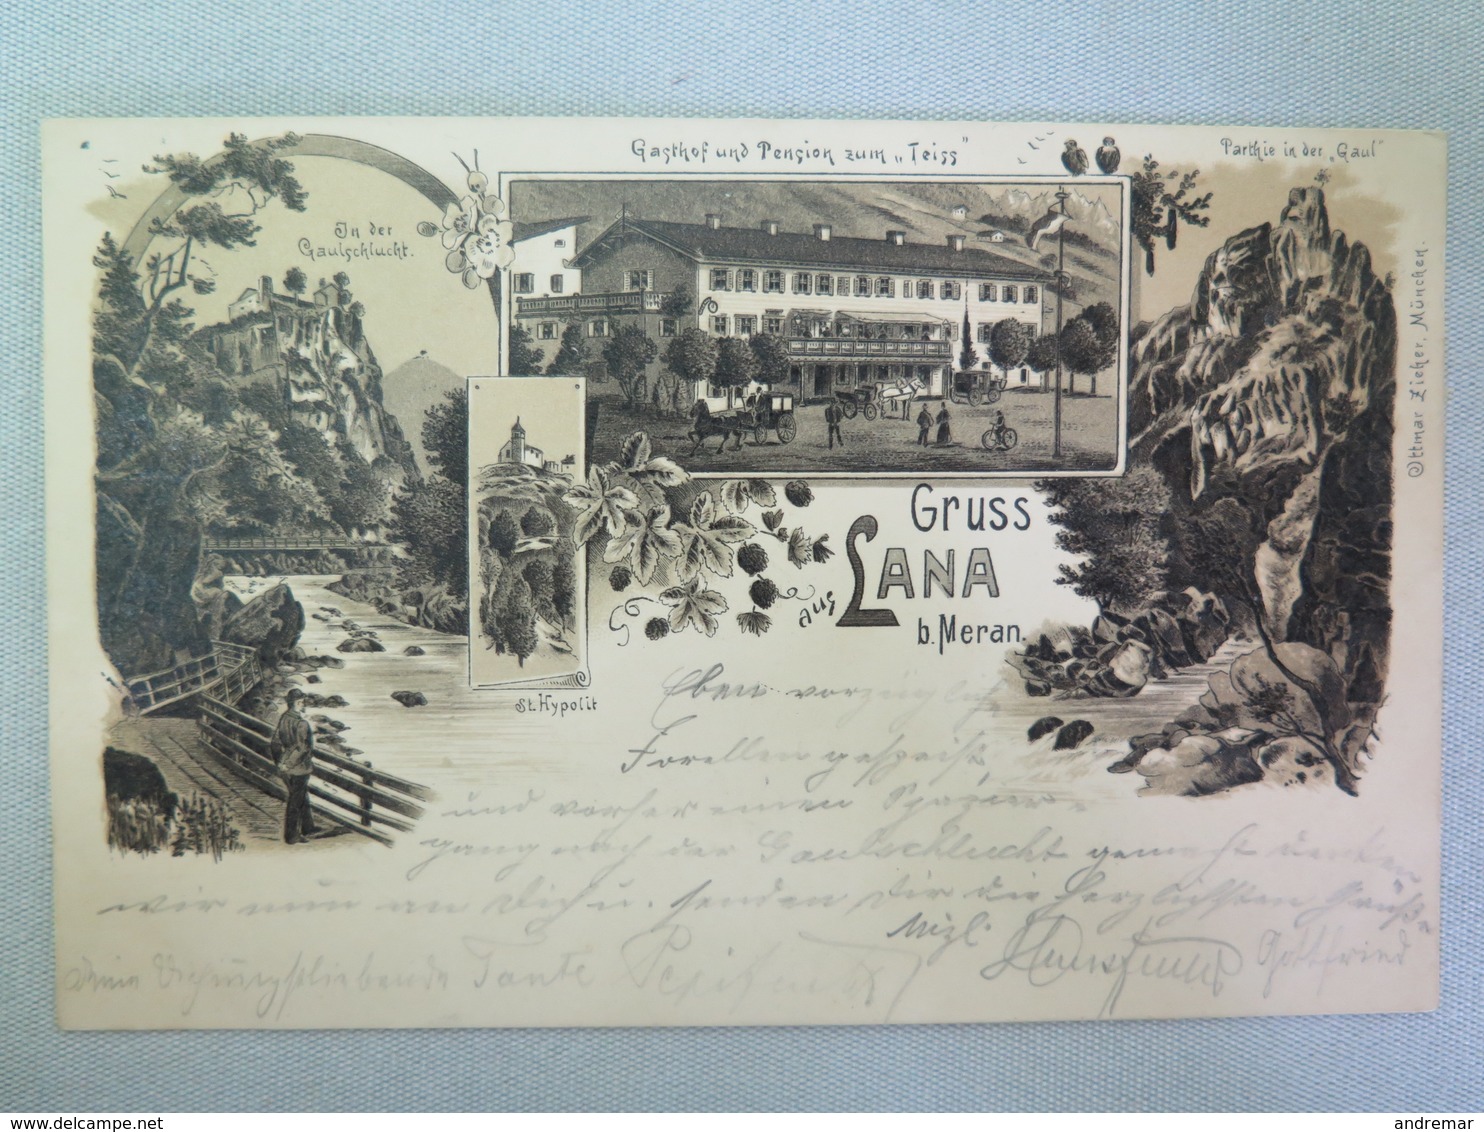 Gasthof und Pension zum „Teiss"
Parthie in der „Gaul"
In der
Gaulschlucht.
Ottmar Zieher, München.
St. Hypolit
Gruss
aus LANA
b. Meran.
Eben vorzüglich
Forellen gespeist,
und vorher einen Spazier-
gang nach der Gaulschlucht gemacht denken
wir nun an Dich u. senden Dir die herzlichsten Grüße
Mizl.
Gottfried
Deine Tante
www.delcampe.net
andremar